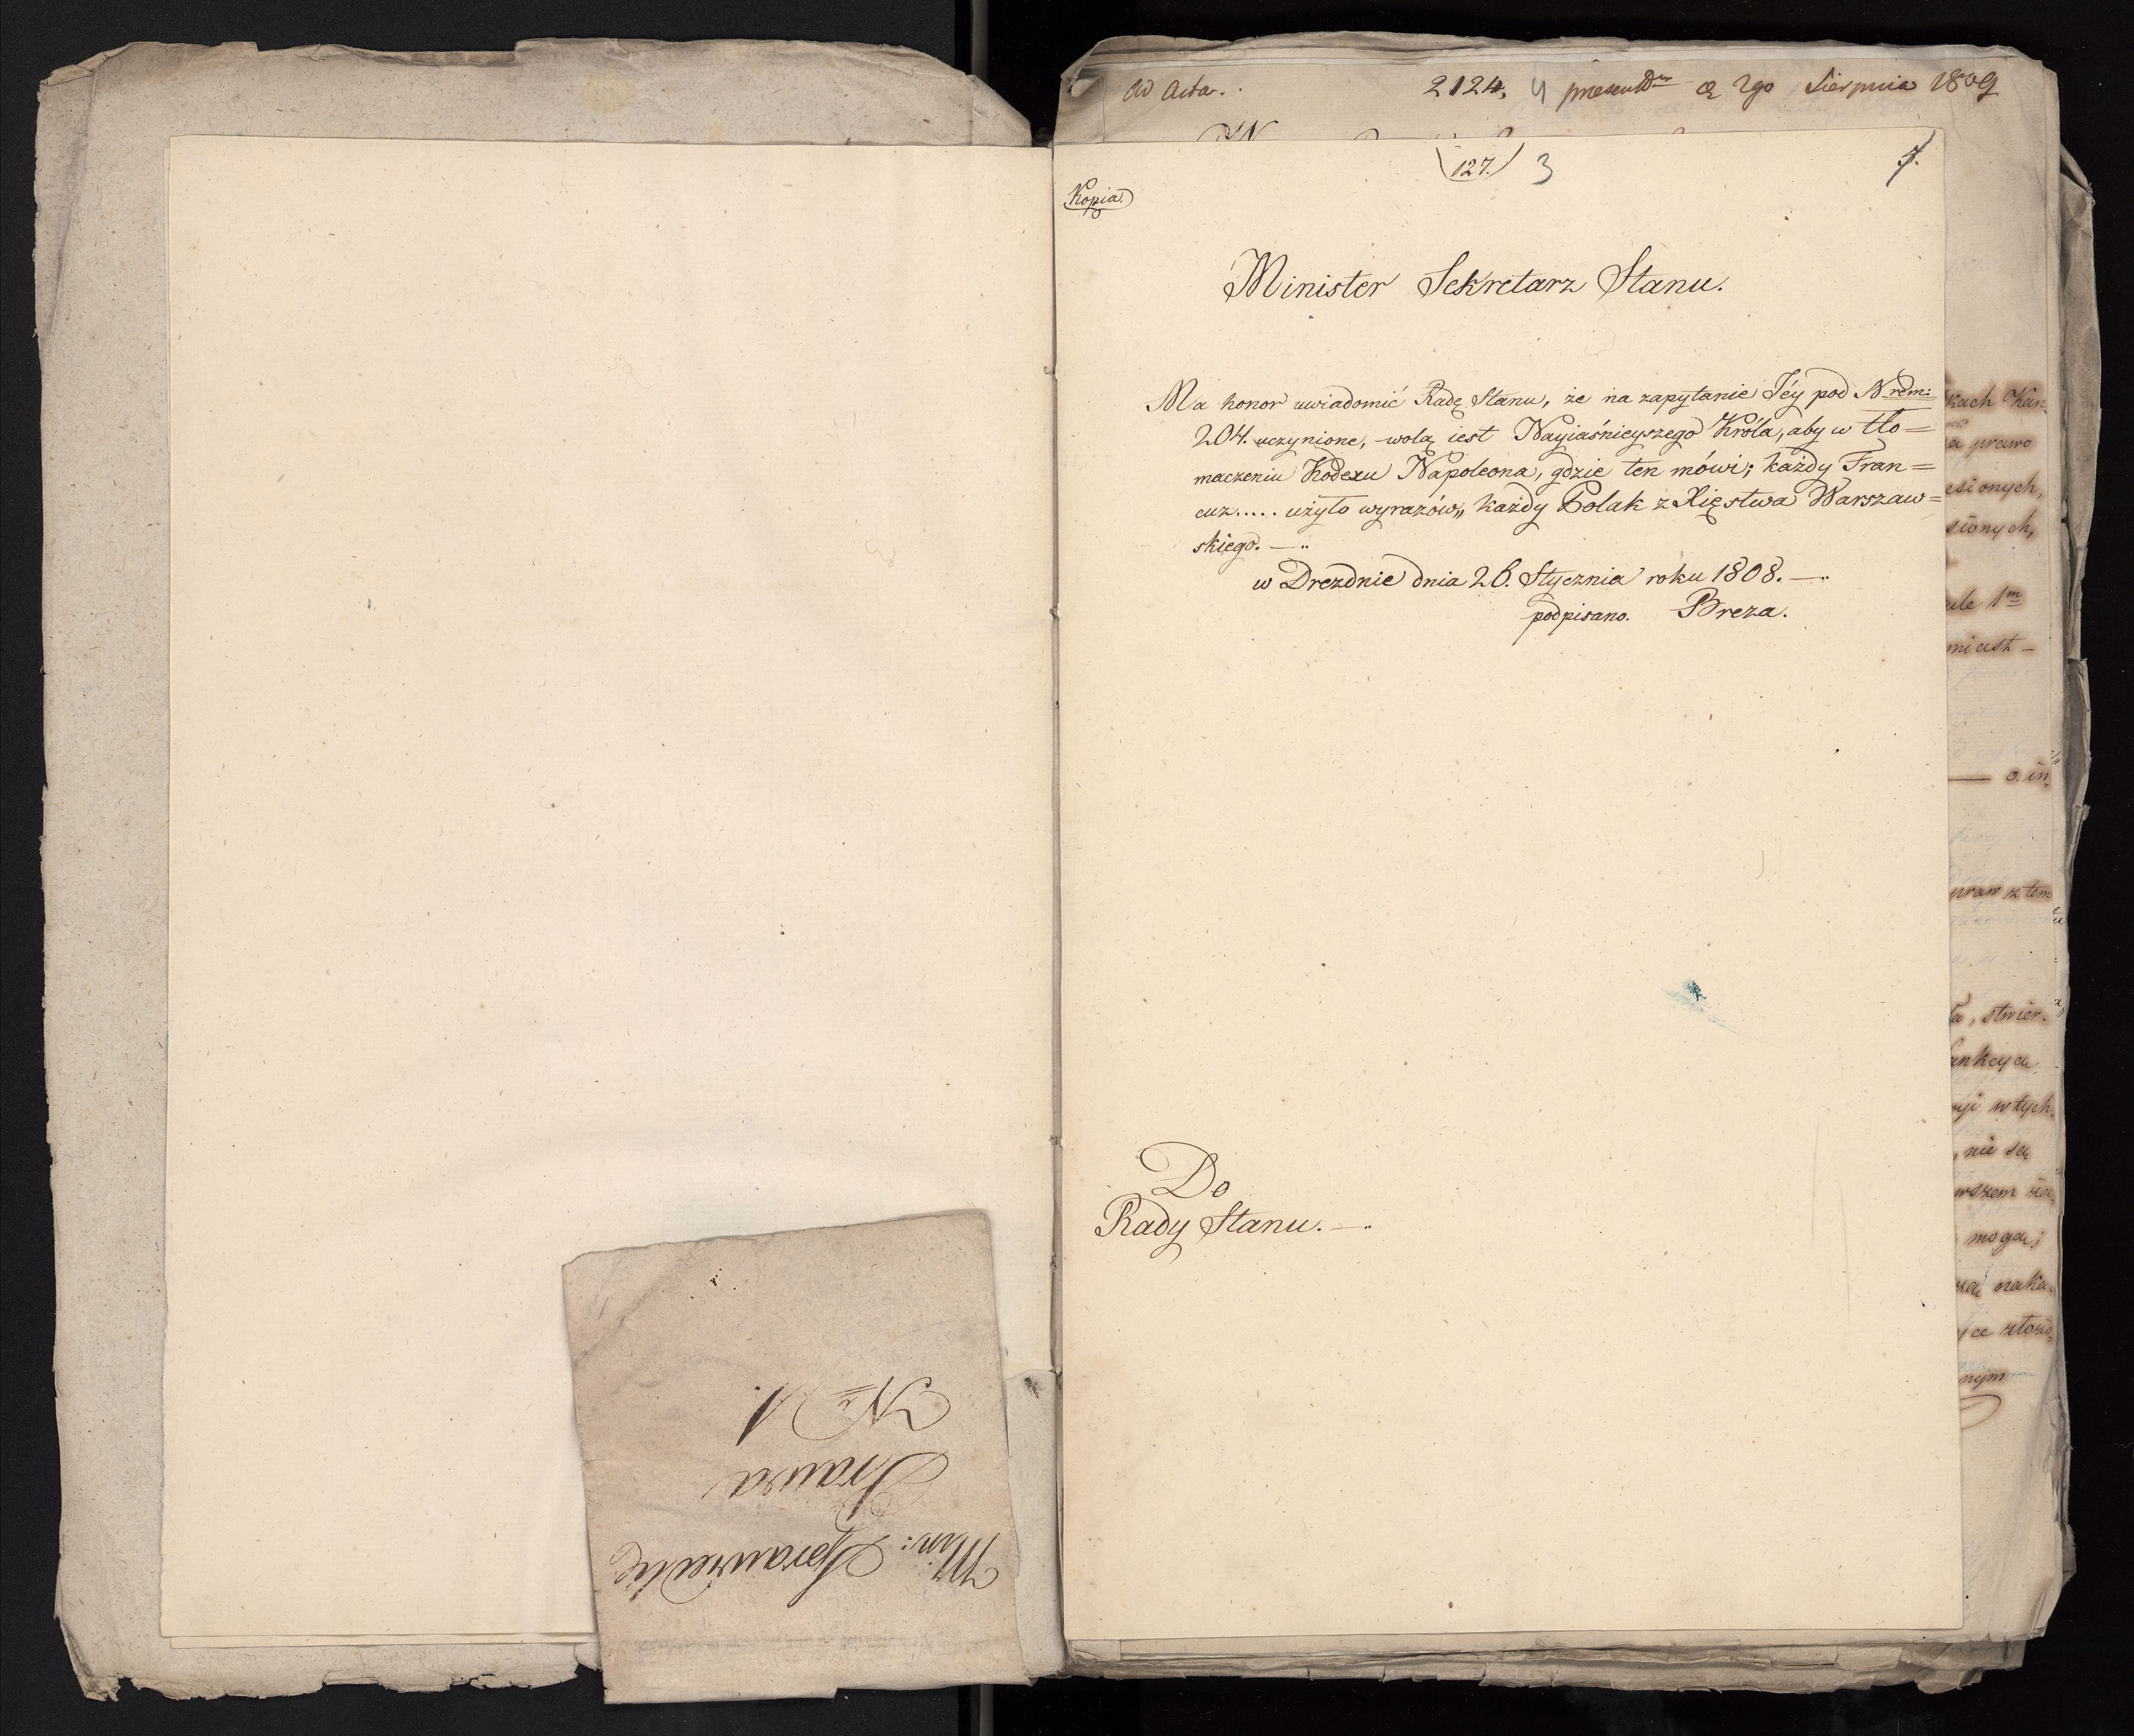 Min: Sprawiedlic
Prawa
Nr 1.
Ad Acta.
2124, 4 praesentdm d. 2go Sierpnia 1809
(127.) 3
7.
Kopia.
Minister Sekretarz Stanu.
Ma honor uwiadomić Radę Stanu, że na zapytanie Jéy pod Nrem:
204. uczynione, wolą iest Nayiaśnieyszego Króla, aby w tło=
maczeniu Kodexu Napoleona, gdzie ten mówi; każdy Fran=
cuz..... użyto wyrazów„ każdy Polak z Xięstwa Warszaw=
skiego. —..
w Dreznie dnia 26. Stycznia roku 1808. —..
podpisano. Breza.
Do
Rady Stanu. —..
kach Kan
prawo
esionych,
sionych,
ule 1m
miast —
— o. in
praw z tem
ta, stwier
ankcya
w tych
, nie są
wszem
mogą;
naka
nym